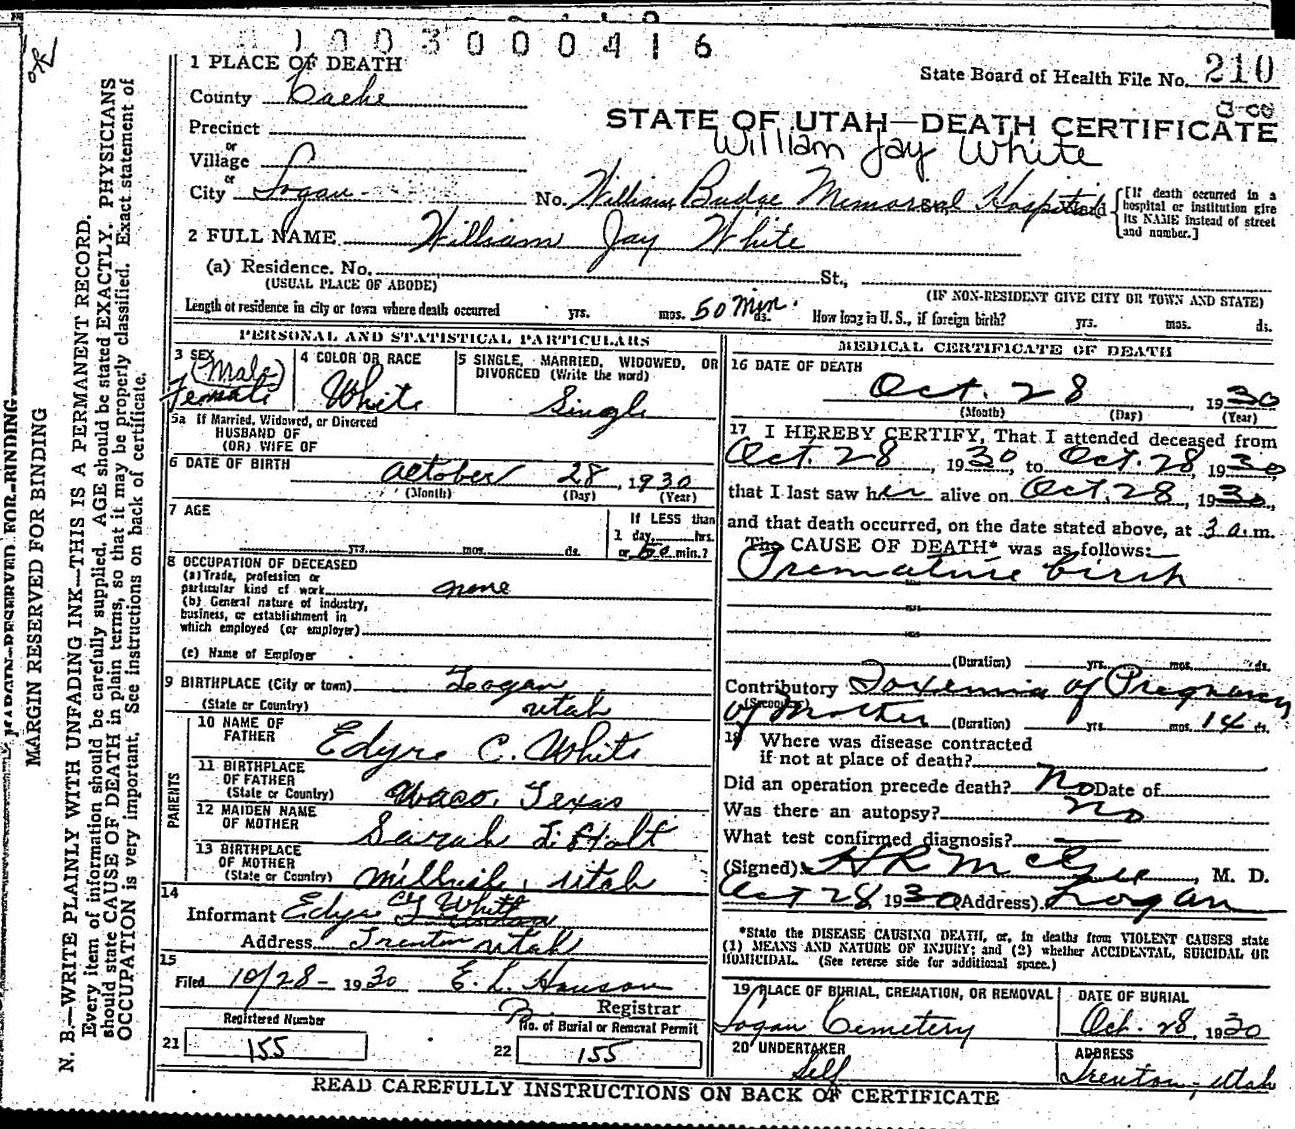 1003000416
1 PLACE OF DEATH
State Board of Health File No. 210
County Cache
STATE OF UTAH—DEATH CERTIFICATE
William Jay White
Precinct
or
Village
or
City Logan
No. William Budge Memorial Hospital
[If death occurred in a
hospital or institution give
its NAME instead of street
and number.]
2 FULL NAME William Jay White
(a) Residence. No. St.,
(USUAL PLACE OF ABODE)
(IF NON-RESIDENT GIVE CITY OR TOWN AND STATE)
Length of residence in city or town where death occurred yrs. mos. 50 Min. ds. How long in U. S., if foreign birth? yrs. mos. ds.
PERSONAL AND STATISTICAL PARTICULARS
3 SEX
(Male)
Female
4 COLOR OR RACE
White
5 SINGLE, MARRIED, WIDOWED, OR
DIVORCED (Write the word)
Single
5a If Married, Widowed, or Divorced
HUSBAND OF
(OR) WIFE OF
6 DATE OF BIRTH October 28, 1930
(Month) (Day) (Year)
7 AGE
yrs. mos. ds.
If LESS than
1 day, hrs.
or 50 min.?
8 OCCUPATION OF DECEASED
(a) Trade, profession or
particular kind of work none
(b) General nature of industry,
business, or establishment in
which employed (or employer)
(c) Name of Employer
9 BIRTHPLACE (City or town) Logan
(State or Country) Utah
PARENTS
10 NAME OF
FATHER Edyre C. White
11 BIRTHPLACE
OF FATHER
(State or Country) Waco, Texas
12 MAIDEN NAME
OF MOTHER Sarah L. Holt
13 BIRTHPLACE
OF MOTHER
(State or Country) Utah
14
Informant Edyre C White
Address Trenton Utah
15
Filed 10/28- 1930 E. L. Hanson
Registrar
Registered Number
21 155
No. of Burial or Removal Permit
22 155
MEDICAL CERTIFICATE OF DEATH
16 DATE OF DEATH
Oct. 28, 1930
(Month) (Day) (Year)
17 I HEREBY CERTIFY, That I attended deceased from
Oct. 28, 1930, to Oct. 28, 1930
that I last saw her alive on Oct. 28, 1930,
and that death occurred, on the date stated above, at 3 a.m.
The CAUSE OF DEATH* was as follows:
Premature birth
(Duration) yrs. mos. ds.
Contributory Toxemia of Pregnancy
(Secondary)
of Mother (Duration) yrs. mos. 14 ds.
18 Where was disease contracted
if not at place of death?
Did an operation precede death? No Date of
Was there an autopsy? No
What test confirmed diagnosis?
(Signed) H R McGee, M. D.
Oct 28 1930 (Address) Logan
*State the DISEASE CAUSING DEATH, or, in deaths from VIOLENT CAUSES state
(1) MEANS AND NATURE OF INJURY; and (2) whether ACCIDENTAL, SUICIDAL OR
HOMICIDAL. (See reverse side for additional space.)
19 PLACE OF BURIAL, CREMATION, OR REMOVAL
Logan Cemetery
DATE OF BURIAL
Oct. 28, 1930
20 UNDERTAKER
Self
ADDRESS
Trenton, Utah
READ CAREFULLY INSTRUCTIONS ON BACK OF CERTIFICATE
MARGIN RESERVED FOR BINDING
MARGIN RESERVED FOR BINDING
N. B.—WRITE PLAINLY WITH UNFADING INK—THIS IS A PERMANENT RECORD.
Every item of information should be carefully supplied. AGE should be stated EXACTLY. PHYSICIANS
should state CAUSE OF DEATH in plain terms, so that it may be properly classified. Exact statement of
OCCUPATION is very important. See instructions on back of certificate.